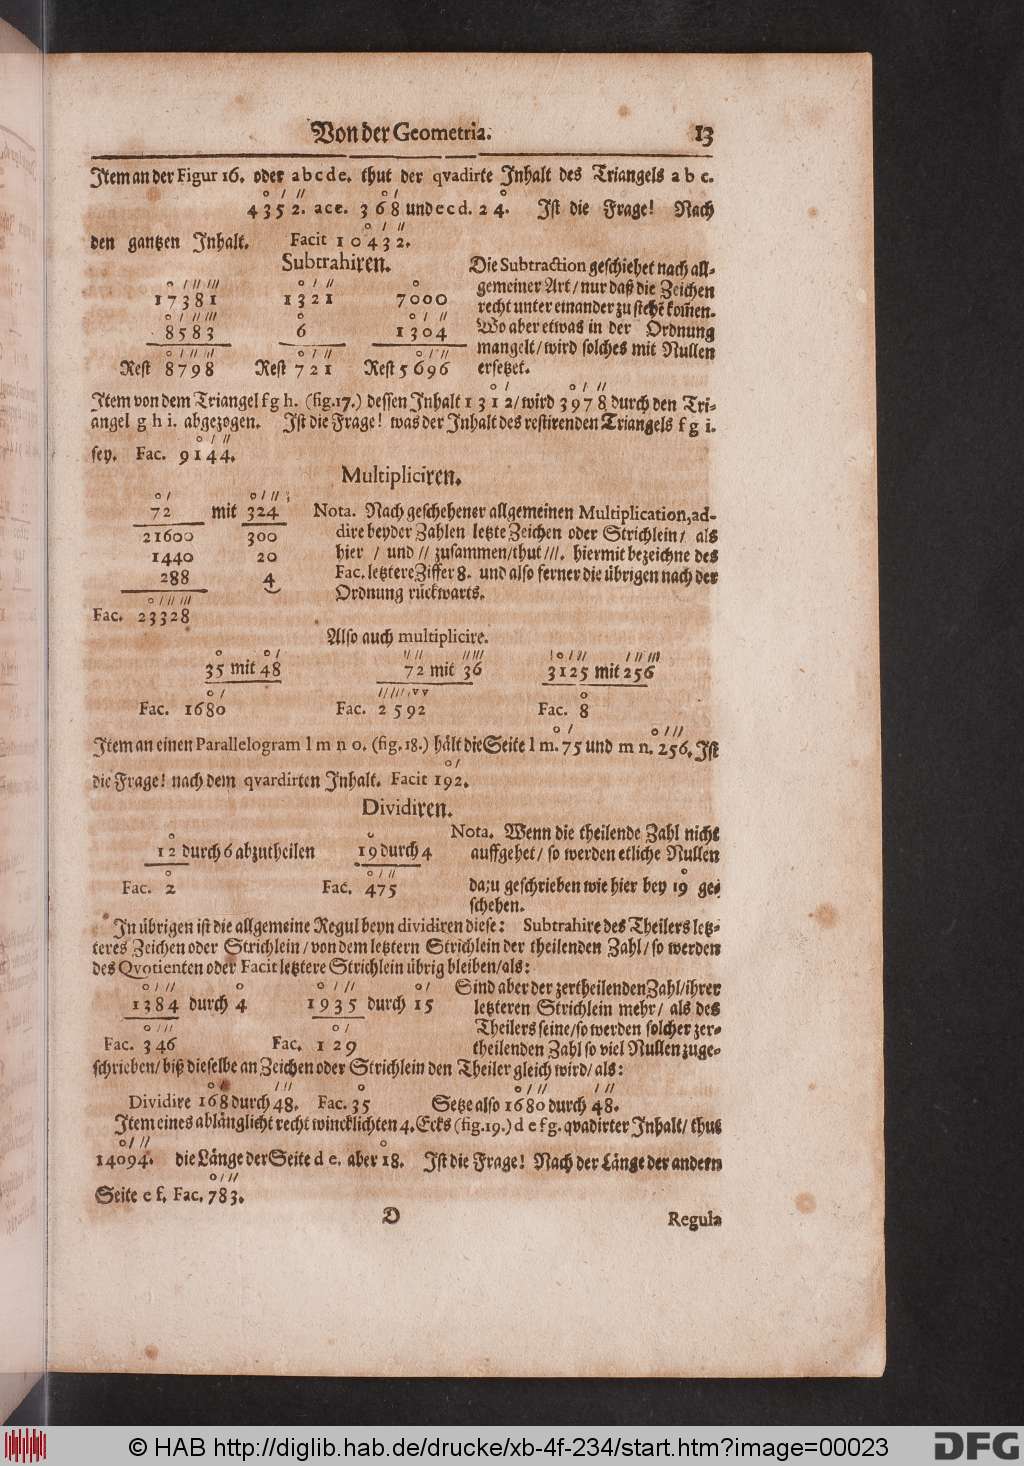 Von der Geometria. 13
Item an der Figur 16. oder a b c d e. thut der qvadirte Inhalt des Triangels a b c.
o / // o / o
4352. ace. 368 und ecd. 24. Ist die Frage! Nach
o / //
den gantzen Inhalt. Facit 10432.
Subtrahiren.
o / // /// o / // o
17381 1321 7000
o / // /// o o / //
8583 6 1304
o / // /// o / // o / //
Rest 8798 Rest 721 Rest 5696
Die Subtraction geschiehet nach all-
gemeiner Art / nur daß die Zeichen
recht unter einander zu stehē kom̄en.
Wo aber etwas in der Ordnung
mangelt / wird solches mit Nullen
ersetzet.
o / o / //
Item von dem Triangel f g h. (fig. 17.) dessen Inhalt 1312 / wird 3978 durch den Tri-
angel g h i. abgezogen. Ist die Frage! was der Inhalt des restirenden Triangels f g i.
o / //
sey. Fac. 9144.
Multipliciren.
o / o / //
72 mit 324
21600 300
1440 20
288 4
o / // ///
Fac. 23328
Nota. Nach geschehener allgemeinen Multiplication, ad-
dire beyder Zahlen letzte Zeichen oder Strichlein / als
hier / und // zusammen / thut ///. hiermit bezeichne des
Fac. letztere Ziffer 8. und also ferner die übrigen nach der
Ordnung rückwarts.
Also auch multiplicire.
o o / // // // /// o / // / // ///
35 mit 48 72 mit 36 3125 mit 256
o / o
Fac. 1680 Fac. 2592 Fac. 8
o / o / //
Item an einen Parallelogram l m n o. (fig. 18.) hält die Seite l m. 75 und m n. 256. Ist
o /
die Frage! nach dem qvardirten Inhalt. Facit 192.
Dividiren.
o o
12 durch 6 abzutheilen 19 durch 4
o o / //
Fac. 2 Fac. 475
Nota. Wenn die theilende Zahl nicht
auffgehet / so werden etliche Nullen
o
dazu geschrieben wie hier bey 19 ge-
schehen.
In übrigen ist die allgemeine Regul beyn dividiren diese: Subtrahire des Theilers letz-
teres Zeichen oder Strichlein / von dem letztern Strichlein der theilenden Zahl / so werden
des Qvotienten oder Facit letztere Strichlein übrig bleiben / als:
o / // o o / // o /
1384 durch 4 1935 durch 15
o / // o /
Fac. 346 Fac. 129
Sind aber der zertheilenden Zahl / ihrer
letzteren Strichlein mehr / als des
Theilers seine / so werden solcher zer-
theilenden Zahl so viel Nullen zuge-
schrieben / biß dieselbe an Zeichen oder Strichlein den Theiler gleich wird / als:
o / / // o o / // / //
Dividire 168 durch 48. Fac. 35 Setze also 1680 durch 48.
Item eines ablänglicht recht wincklichten 4. Ecks (fig. 19.) d e f g. qvadirter Inhalt / thut
o / // o
14094. die Länge der Seite d e. aber 18. Ist die Frage! Nach der Länge der andern
o / //
Seite e f. Fac. 783.
D Regula
© HAB http://diglib.hab.de/drucke/xb-4f-234/start.htm?image=00023 DFG